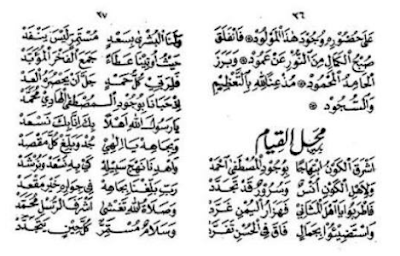 ٣٦
عَلَى حُضُوْرِهِ وَوُجُوْدِ هٰذَا الْمَوْلُوْدِ ۞ فَانْفَلَقَ
صُبْحُ الْكَمَالِ مِنَ النُّوْرِ عَنْ عَمُوْدٍ ۞ وَبَرَزَ
الْحَامِدُ الْمَحْمُوْدُ ۞ مُذْعِنًا لِلّٰهِ بِالتَّعْظِيْمِ
وَالسُّجُوْدِ ۞
مَحَلُّ الْقِيَامِ
اَشْرَقَ الْكَوْنُ ابْتِهَاجًا بِوُجُوْدِ الْمُصْطَفٰى اَحْمَدْ
وَلِاَهْلِ الْكَوْنِ اُنْسٌ وَسُرُوْرٌ قَدْ تَجَدَّدْ
فَاطْرَبُوْا يَا اَهْلَ الْمَثَانِيْ فَهَزَارُ الْيُمْنِ غَرَّدْ
وَاسْتَضِيْئُوْا بِجَمَالٍ فَاقَ فِي الْحُسْنِ تَفَرَّدْ
٣٧
وَلَنَا الْبُشْرٰى بِسَعْدٍ مُسْتَمِرٍّ لَيْسَ يَنْفَدْ
حَيْثُ اُوْتِيْنَا عَطَاءً جَمَعَ الْفَخْرَ الْمُؤَبَّدْ
فَلِرَبِّيْ كُلُّ حَمْدٍ جَلَّ اَنْ يَحْصُرَهُ الْعَدْ
اِذْ حَبَانَا بِوُجُوْدِ الْـمُصْطَفَى الْهَادِيْ مُحَمَّدْ
يَا رَسُوْلَ اللّٰهِ اَهْلًا بِكَ اِنَّا بِكَ نُسْعَدْ
وَبِجَاهِهِ يَا اِلٰهِيْ جُدْ وَبَلِّغْ كُلَّ مَقْصَدْ
وَاهْدِنَا نَهْجَ سَبِيْلِهْ كَيْ بِهِ نُسْعَدْ وَنُرْشَدْ
رَبِّ بَلِّغْنَا بِجَاهِهْ فِيْ جِوَارِهْ خَيْرَ مَقْعَدْ
وَصَلَاةُ اللّٰهِ تَغْشٰى اَشْرَفَ الرُّسْلِ مُحَمَّدْ
وَسَلَامٌ مُسْتَمِرٌّ كُلَّ حِيْنٍ يَتَجَدَّدْ